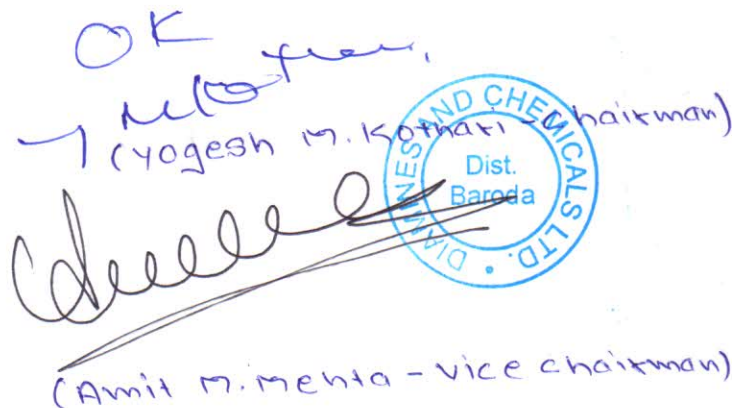 OK
(Yogesh M. Kothari - Chairman)
DIAMINES AND CHEMICALS LTD.
Dist.
Baroda
(Amit M. Mehta - Vice chairman)